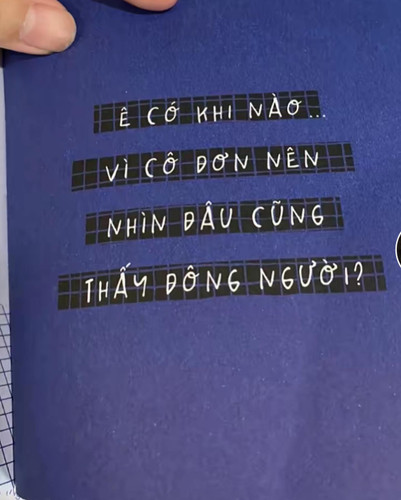 Ê CÓ KHI NÀO...
VÌ CÔ ĐƠN NÊN
NHÌN ĐÂU CŨNG
THẤY ĐÔNG NGƯỜI?